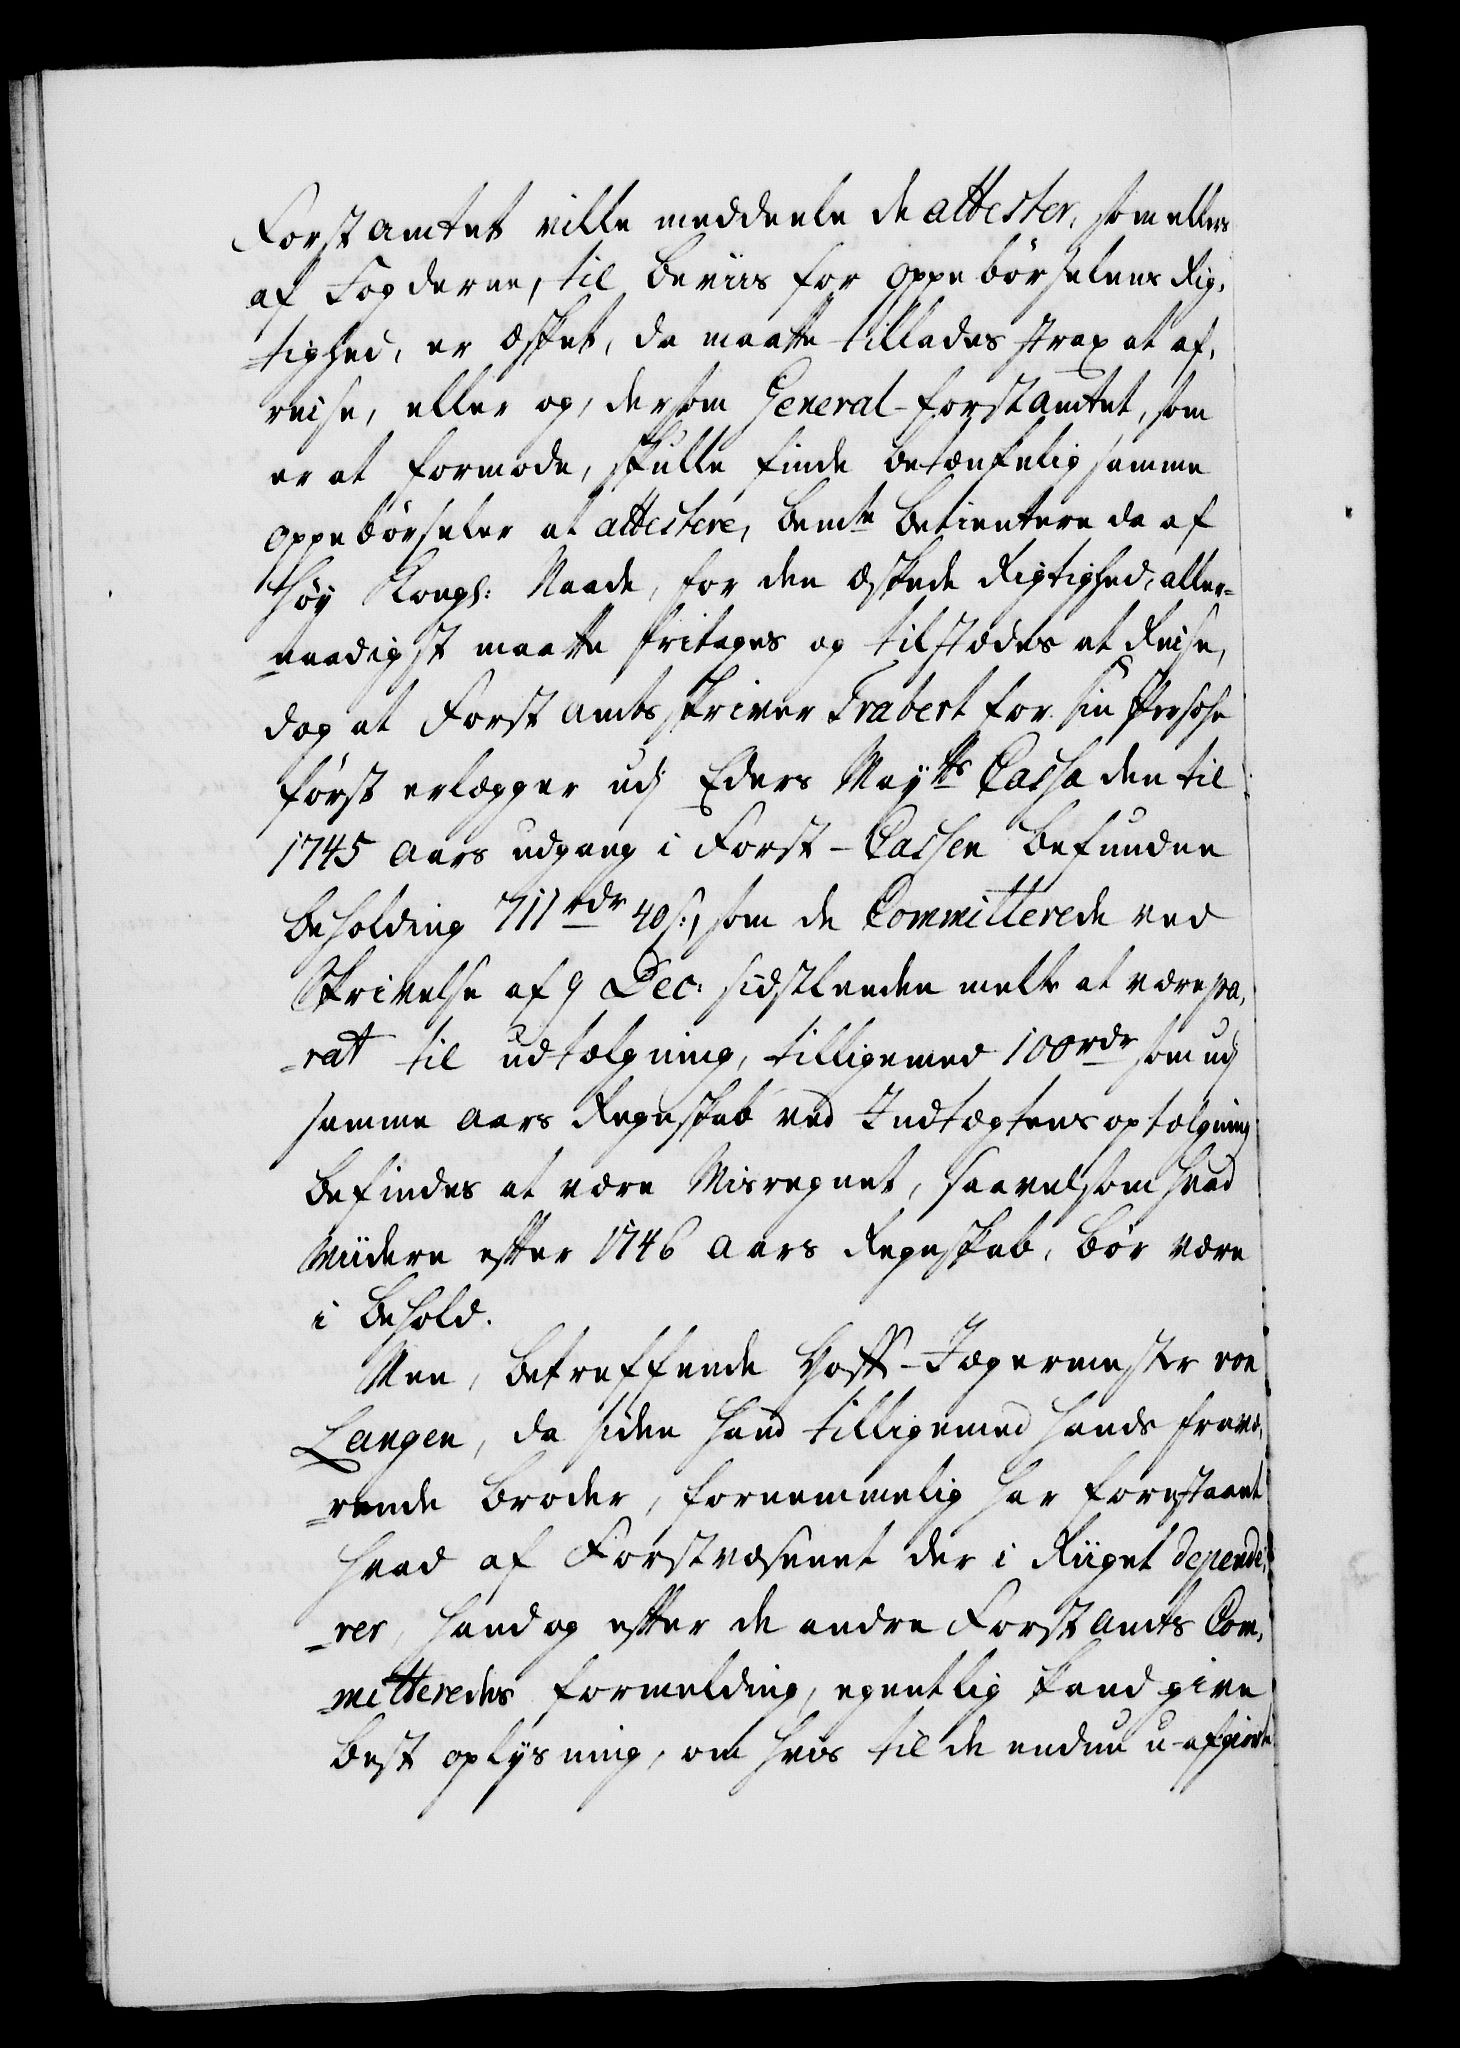 Forstamtet ville meddeele de attester, som ellers
af Fogderne, til beviis for oppebørselens Rig,
tighed, er æsket, da maatte tillades strax at af,
reise, eller og, dersom General-forstamtet, som
er at formode, skulle finde betænkelig samme
oppebørseler at attestere, bemte betientere da af
Høy Kongl: Naade, for den æskede Rigtighed, aller-
naadigst maatte fritages og tilstædes at Reise,
dog at Forst amts skriver Trabert for sin Persohn
først erlægger udj Eders Maytts Cassa den til
1745 aars udgang i Forst-Cassen befundne
beholding 711 rdr 40 s:, som de Committerede ved
Skrivelse af 9 Dec: sidstleeden melte at være pa,
-rat til udtælgning, tilligemed 100 rdr som udj
samme aars Regnskab ved Indtægtens optælgning
befindes at være Misregnet, saavelsom hvad
Viidere efter 1746 aars Regnskab, bør være
i behold.
Men, betreffende Hoff-Jægermester von
Langen, da siden hand tilligemed hands fravæ,
-rende broder, fornemmelig har forestaaet
hvad af Forstvæsenet der i Riiget dependi,
-rer, hand og efter de andre Forst amts Com,
-mitteredes formelding, egentlig kand give
best oplysning, om hvis til de endnu u-afgiorte